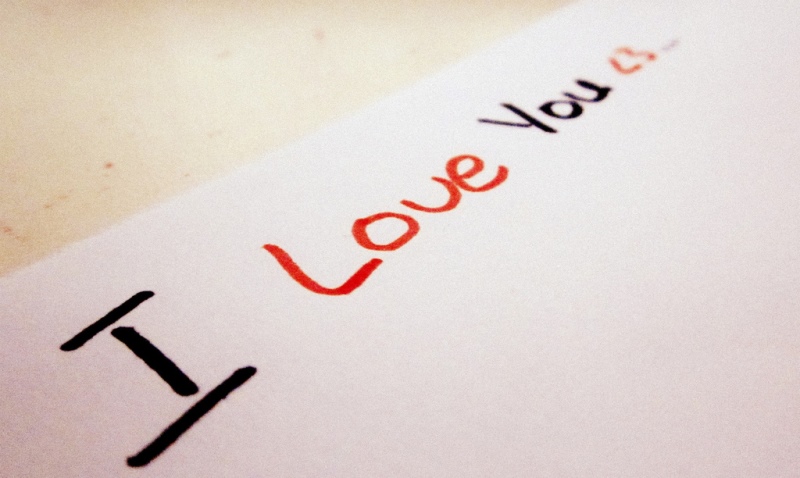 I Love You <3...